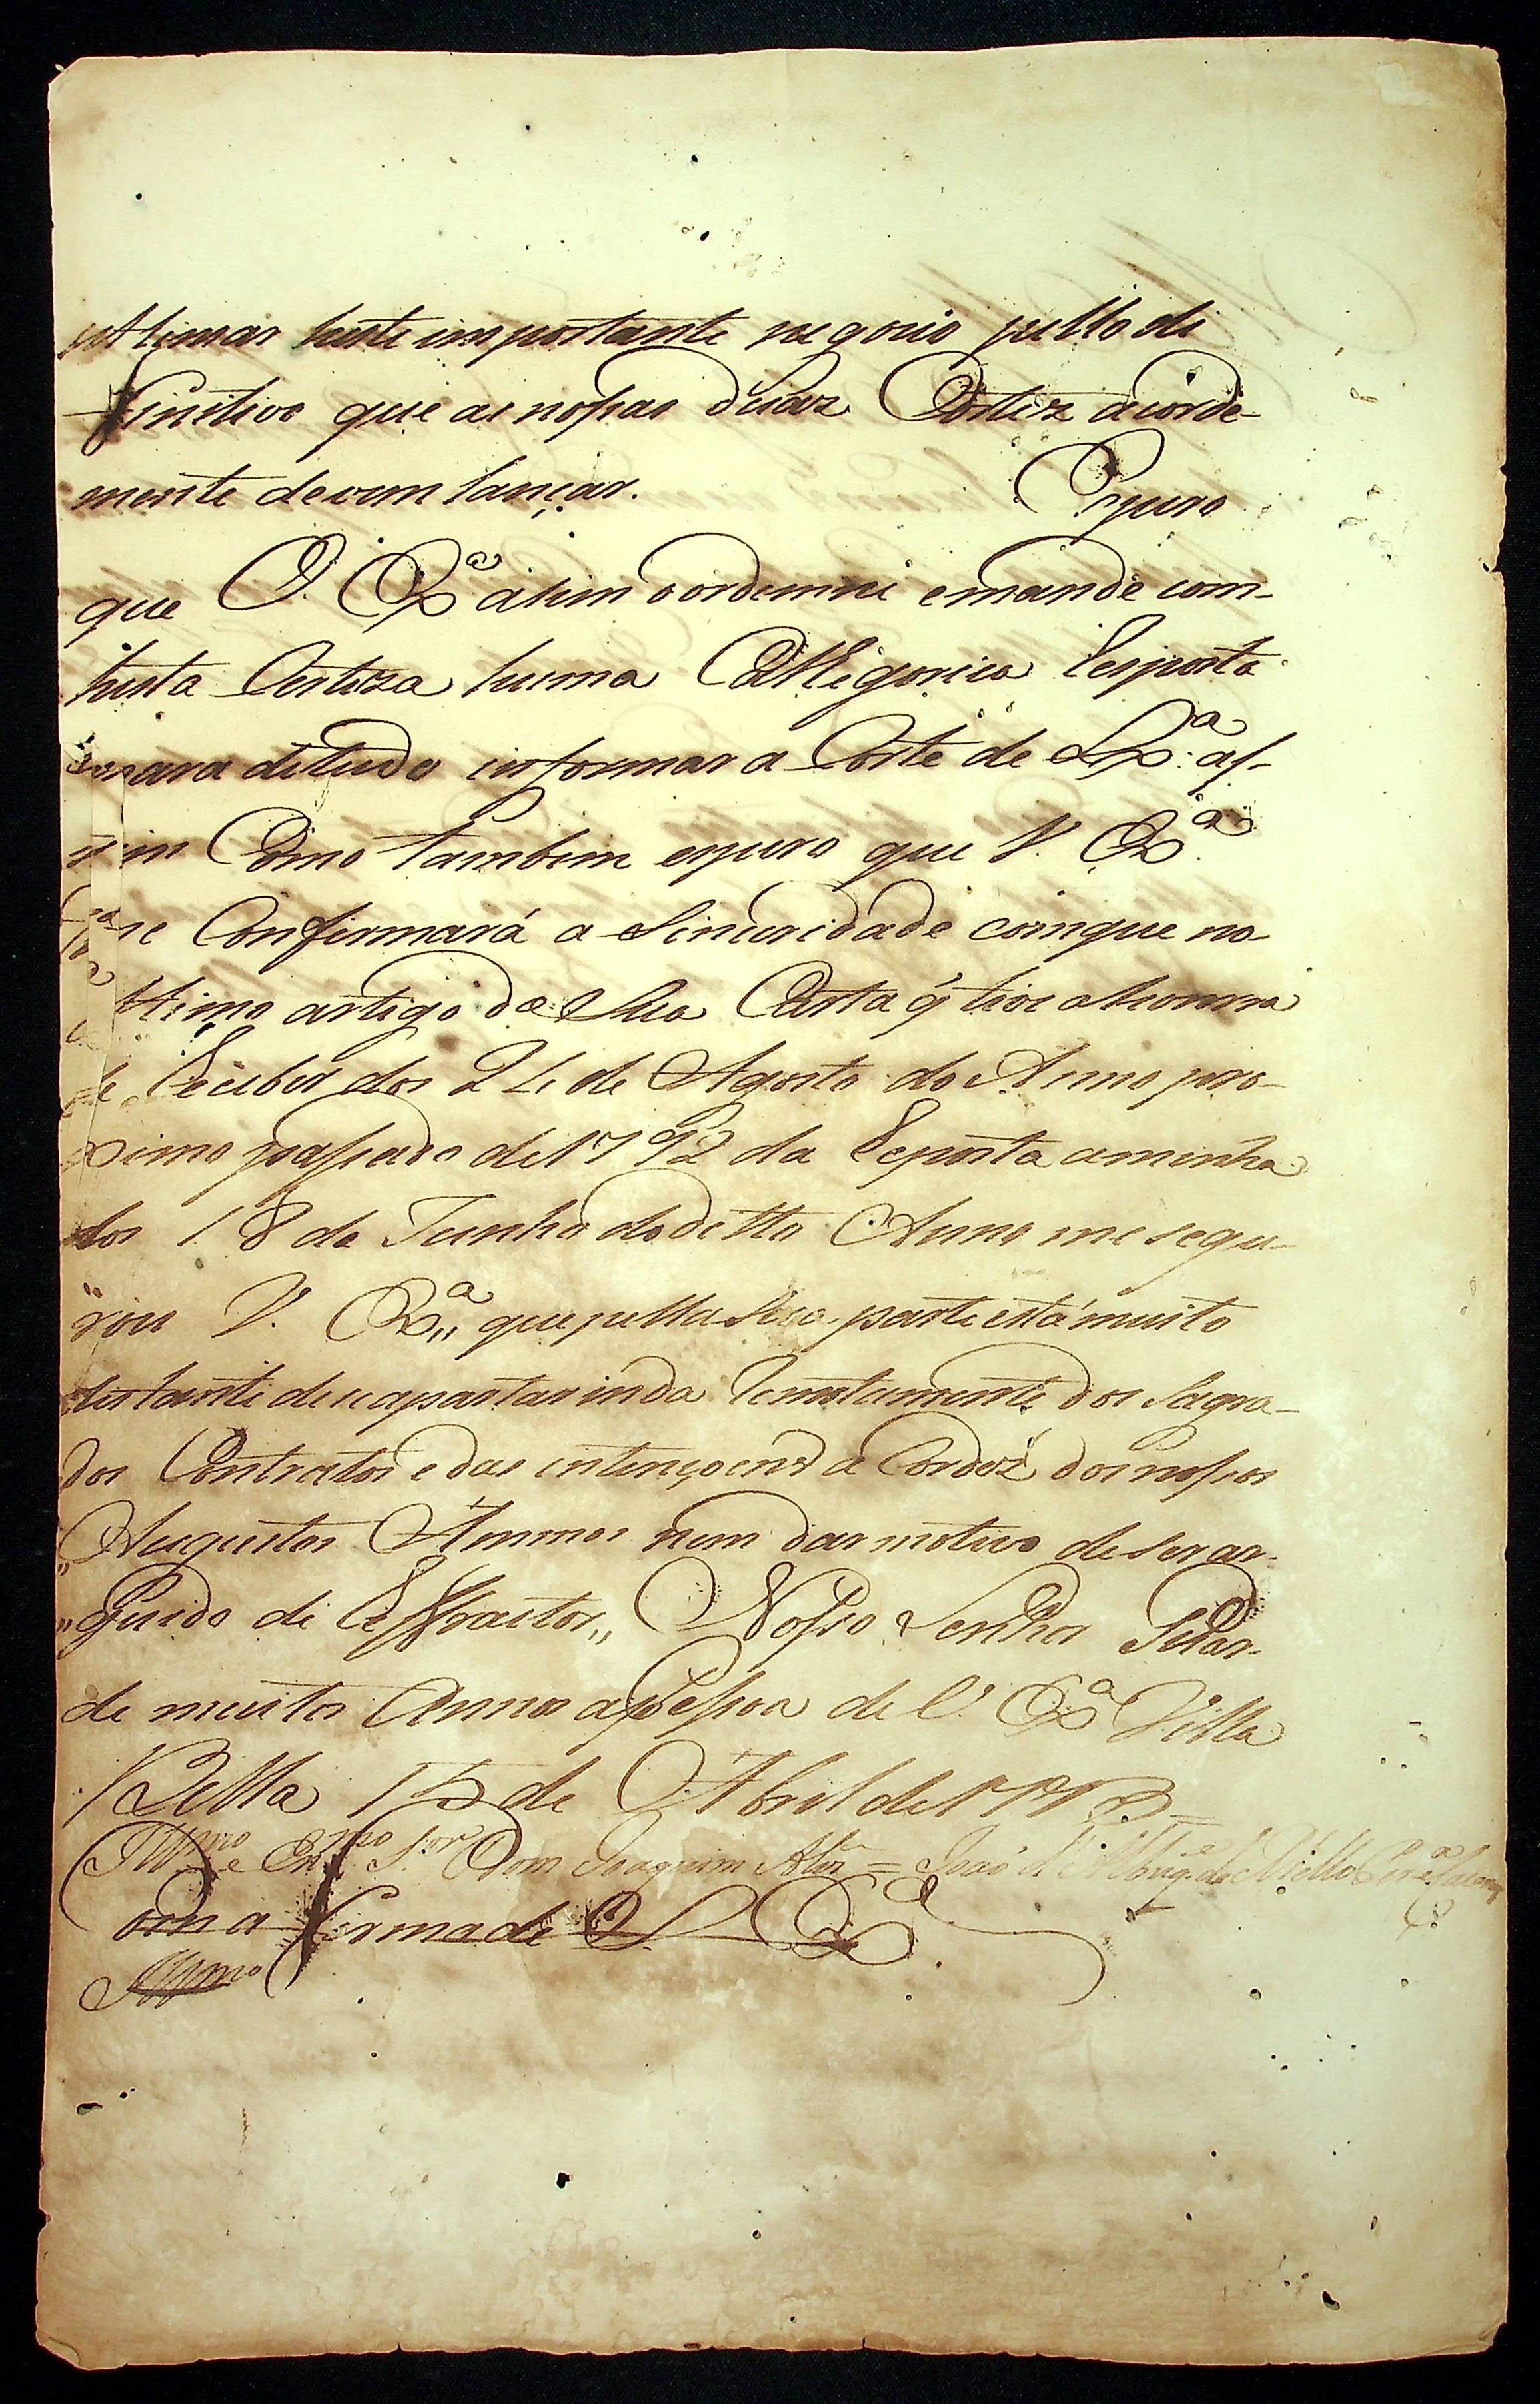 ultimar heste importante negocio pello di
finitivo que as nossas duaz Cortez acorde-
mente devem lançar. Espero
que V. Exª assim o ordenne e mande com-
husta Certeza huma Cathegorica Resposta
para detudo informar a Corte de Lxª: as-
sim Como tambem espero que V. Exª.
me Confirmará a Sinceridade comque no
ultimo artigo de Sua Carta q̃ tive a honrra
de Receber dos 24 de Agosto do Anno pro-
ximo passado de 1792 da Reposta aminha
dos 18 de Junho do ditto Anno me segu-
rou V. Exª,, que pella Sua parte está muito
distante de se apartar inda Remotamente dos Sagra-
dos Contratos e das intençoens de Cordoz dos nossos
,,Augustos Ammos nem dar motivo de ser ar-
,,guido de Effractor,, Nosso Senhor Guar-
de muitos Annos a pessoa de V. Exª Villa
Bella 15 de Abril de 1793 =
Illmo e Exmo Snr Dom Joaquim Alós = João d'Albuqe. de Mello Perª e Caceres
Com a firma de S. Exª.
Illmo